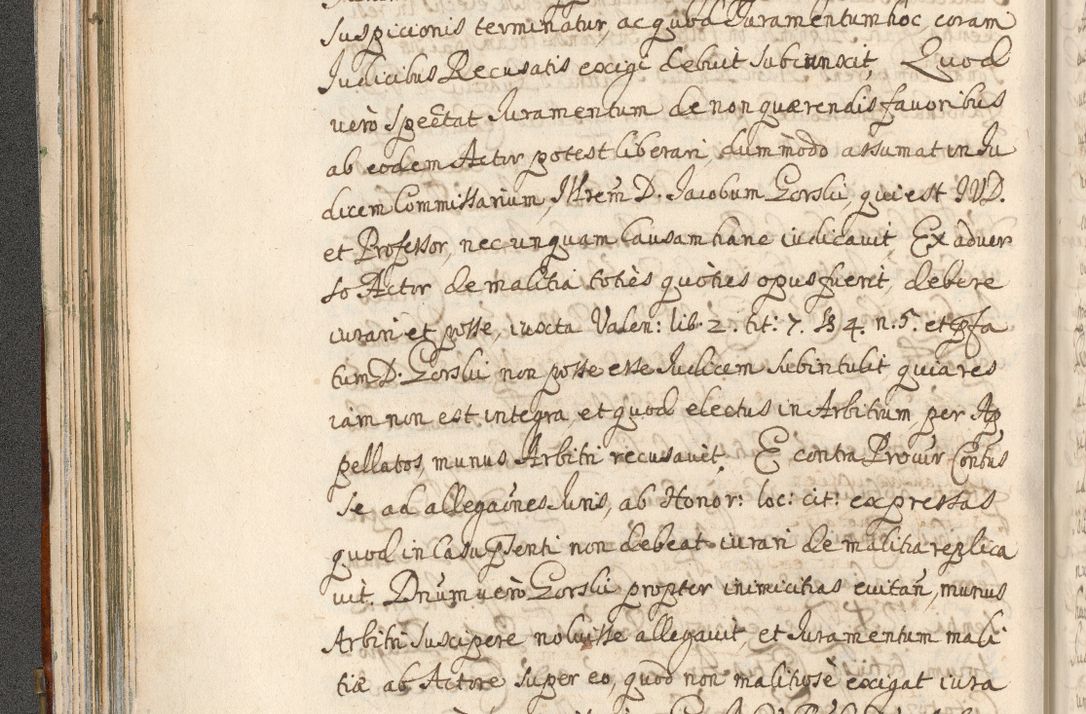 suspicionis terminatur, ac quod Juramentum hoc coram
Judicibus Recusatis exigi debuit subiunxit, Quod
verò spectat Juramentum de non quærendis favoribus
ab eodem Actor potest liberari, dummòdò assumat in Ju
dicem Commissarium, Illrem D. Jacobum Gorski, qui est JVD.
et Professor, nec unquam Causam hanc iudicavit, Ex adver
so Actor de malitia totiès quoties opus fuerit, debere
iurari et posse, iuxta Valen: lib. 2. tit: 7. § 4. n. 5. et pfa
tum D. Gorski non posse esse Judicem subintulit quia res
iam non est integra, et quod electus in Arbitrum per Ap
pellatos, munus Arbitri recusavit, E contra Provir Contus
se ad allegaones Juris, ab Honor: loc: cit: expressas
quod in Casu psenti non debeat iurari de malitia replica
vit. Dnum verò Gorski propter inimicitias evitan, munus
Arbitri suscipere noluisse allegavit, et Juramentum mali
tiæ ab Actore super eo, quod non malitiosè exigat iura